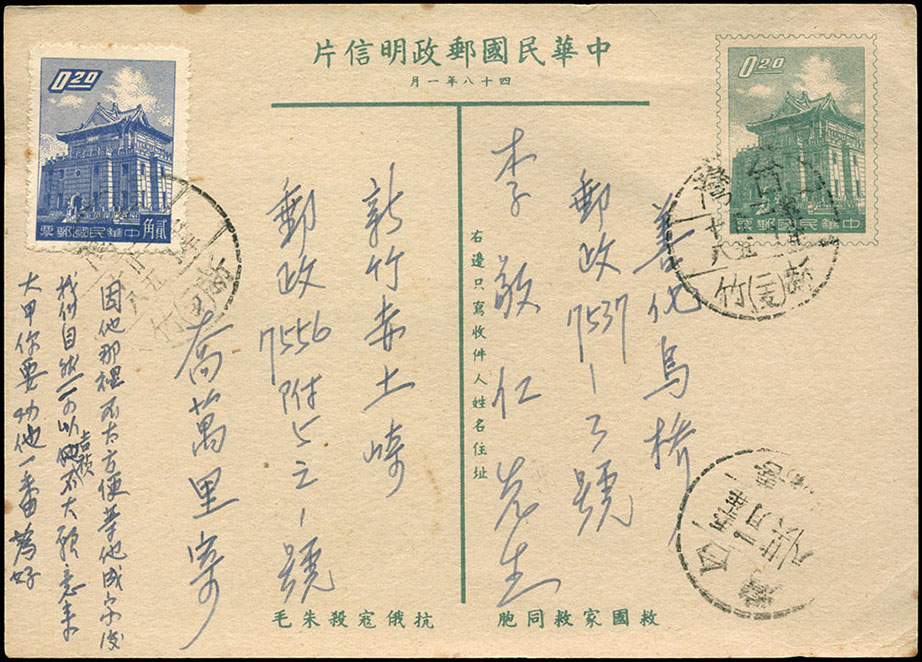 中華民國郵政明信片
四十八年一月
0.20
中華民國郵票
善化烏橋
郵政7537-3號
李敬仁先生
右邊只寫收件人姓名住址
新竹赤土崎
郵政7556附5之1號
喬萬里寄
救國家救同胞
抗俄寇殺朱毛
0.20
中華民國郵票
貳角
因他那裡不大方便等他成家後
找份自然一可以
吉禎
不大願意来
大甲你要劝他一番為好
台灣
新竹